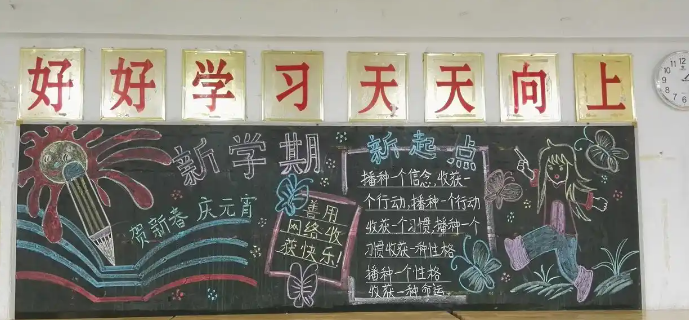 好好学习天天向上
新学期 新起点
贺新春 庆元宵
善用
网络收
获快乐!
播种一个信念,收获一
个行动,播种一个行动
收获一个习惯,播种一个
习惯收获一种性格
播种一个性格
收获一种命运.